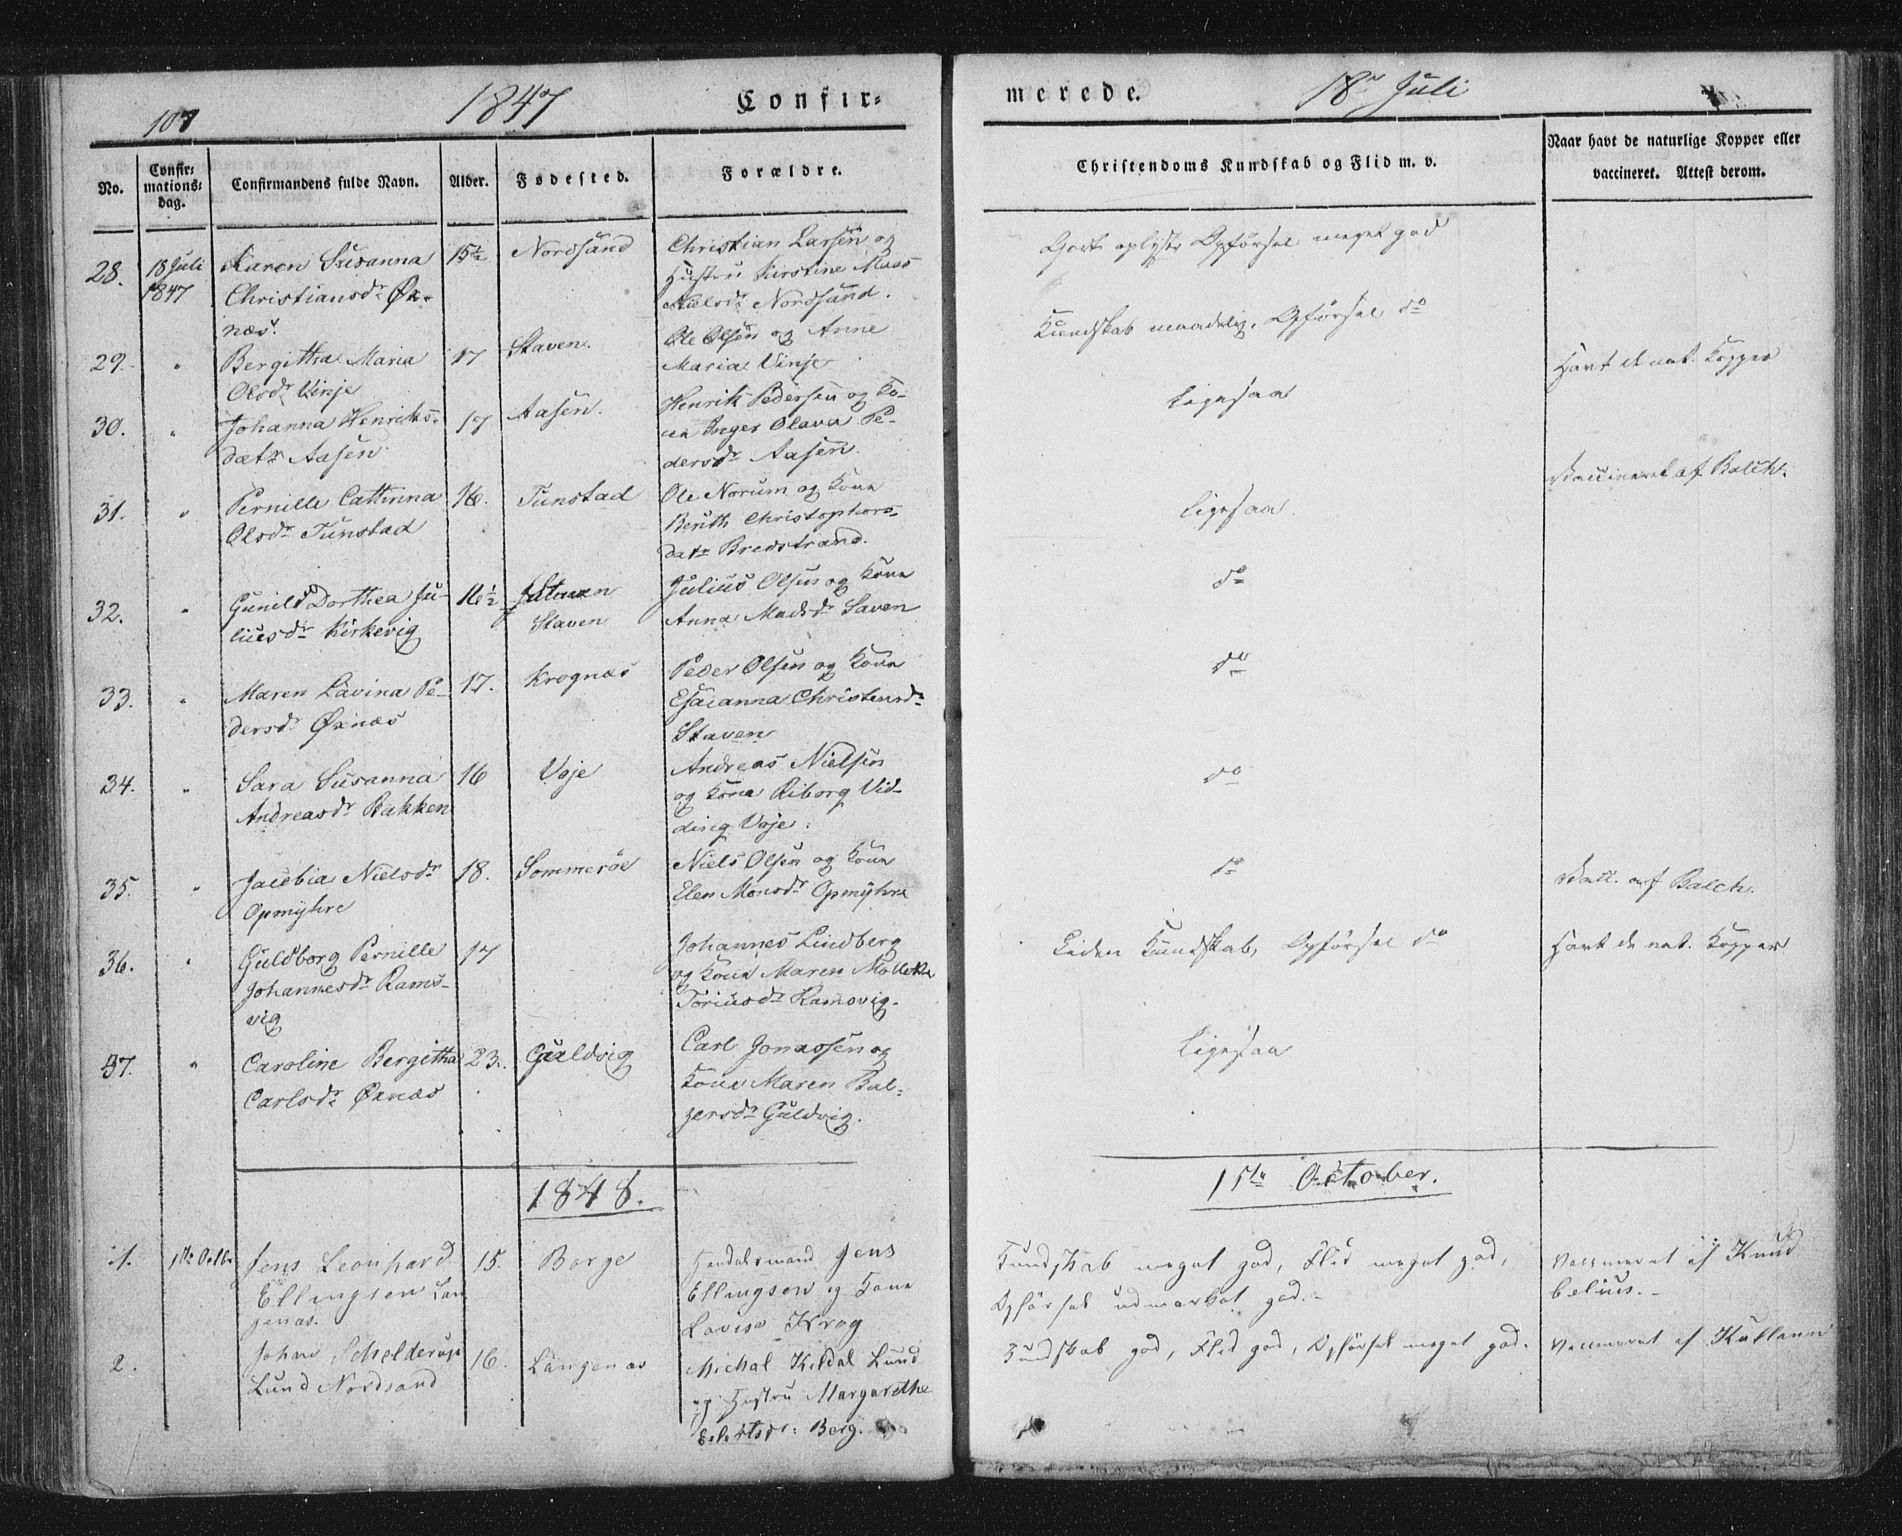 107
1847
Confir-
merede.
18de Juli
No.
Confir-
mations-
dag.
Confirmandens fulde Navn.
Alder.
Fødested.
Forældre.
Christendoms Kundskab og Flid m. v.
Naar havt de naturlige Kopper eller
vaccineret. Attest derom.
28.
18 Juli
1847
Karen Susanna
Christiansdr Øx-
næs.
15½
Nordsand
Christian Larsen og
Hustru Kirstine Maas
Nielsdr Nordsand.
Godt oplyst Opførsel meget god
29.
"
Bergitha Maria
Olsdr Vinje
17
Staven.
Ole Olsen og Anne
Maria Vinje
Kundskab maadelig, Opførsel do
Havt de nat. Kopper
30.
"
Johanna Henriks-
datr Aasen
17
Aasen.
Henrik Pedersen og Ko-
na Inger Olava Pe-
dersdr Aasen.
Ligesaa
31.
"
Pernille Cathrina
Olsdr Tunstad
16.
Tunstad
Ole Norum og Kona
Berith Christophers-
datr Bredstrand.
Ligesaa.
Vaccineret af Balch.
32.
"
Gunild Dorthea Ju-
liusdr Kirkevig
16½
Staven
Julius Olsen og Kona
Anna Madsdr Saven
do
33.
"
Maren Lavina Pe-
dersdr Øxnæs
17.
Krognæs
Peder Olsen og Kona
Esaianna Christensdr
Staven
do
34.
"
Sara Susanna
Andreasdr Bakken
16
Vøje
Andreas Nielsen
og Kona Riborg Vid-
ding Vøje.
do
35.
"
Jacobia Nielsdr
Opmyhre
18.
Sommerøe
Niels Olsen og Kona
Elen Monsdr Opmyhre
do
Vacc. af Balch.
36.
"
Guldborg Pernille
Johannesdr Rams-
vig
17
Johannes Lindberg
og Kona Maren
Toriusdr Ramsvig.
Liden Kundskab, Opførsel do
Havt de nat. Kopper
37.
"
Caroline Bergitha
Carlsdr Øxnæs
23.
Guldvig
Carl Jonassen og
Kona Maren Bal-
zersdr Guldvig.
Ligesaa
1848.
15de October.
1.
Jens Leonhard
Ellingsen Lan
genæs.
15.
Borge
Handelsmand Jens
Ellingsen og Kona
Lovise Krog
Kundskab meget god, Flid meget god,
Opførsel udmærket god.
Vaccineret af Knud
2.
"
Johan Schelderup
Lund Nordsand
16.
Langenæs
Michal Kildal Lund
og Hustru Margarethe
Eilertsdr: Berg.
Kundskab god, Flid god, Opførsel meget god.
Vaccineret af